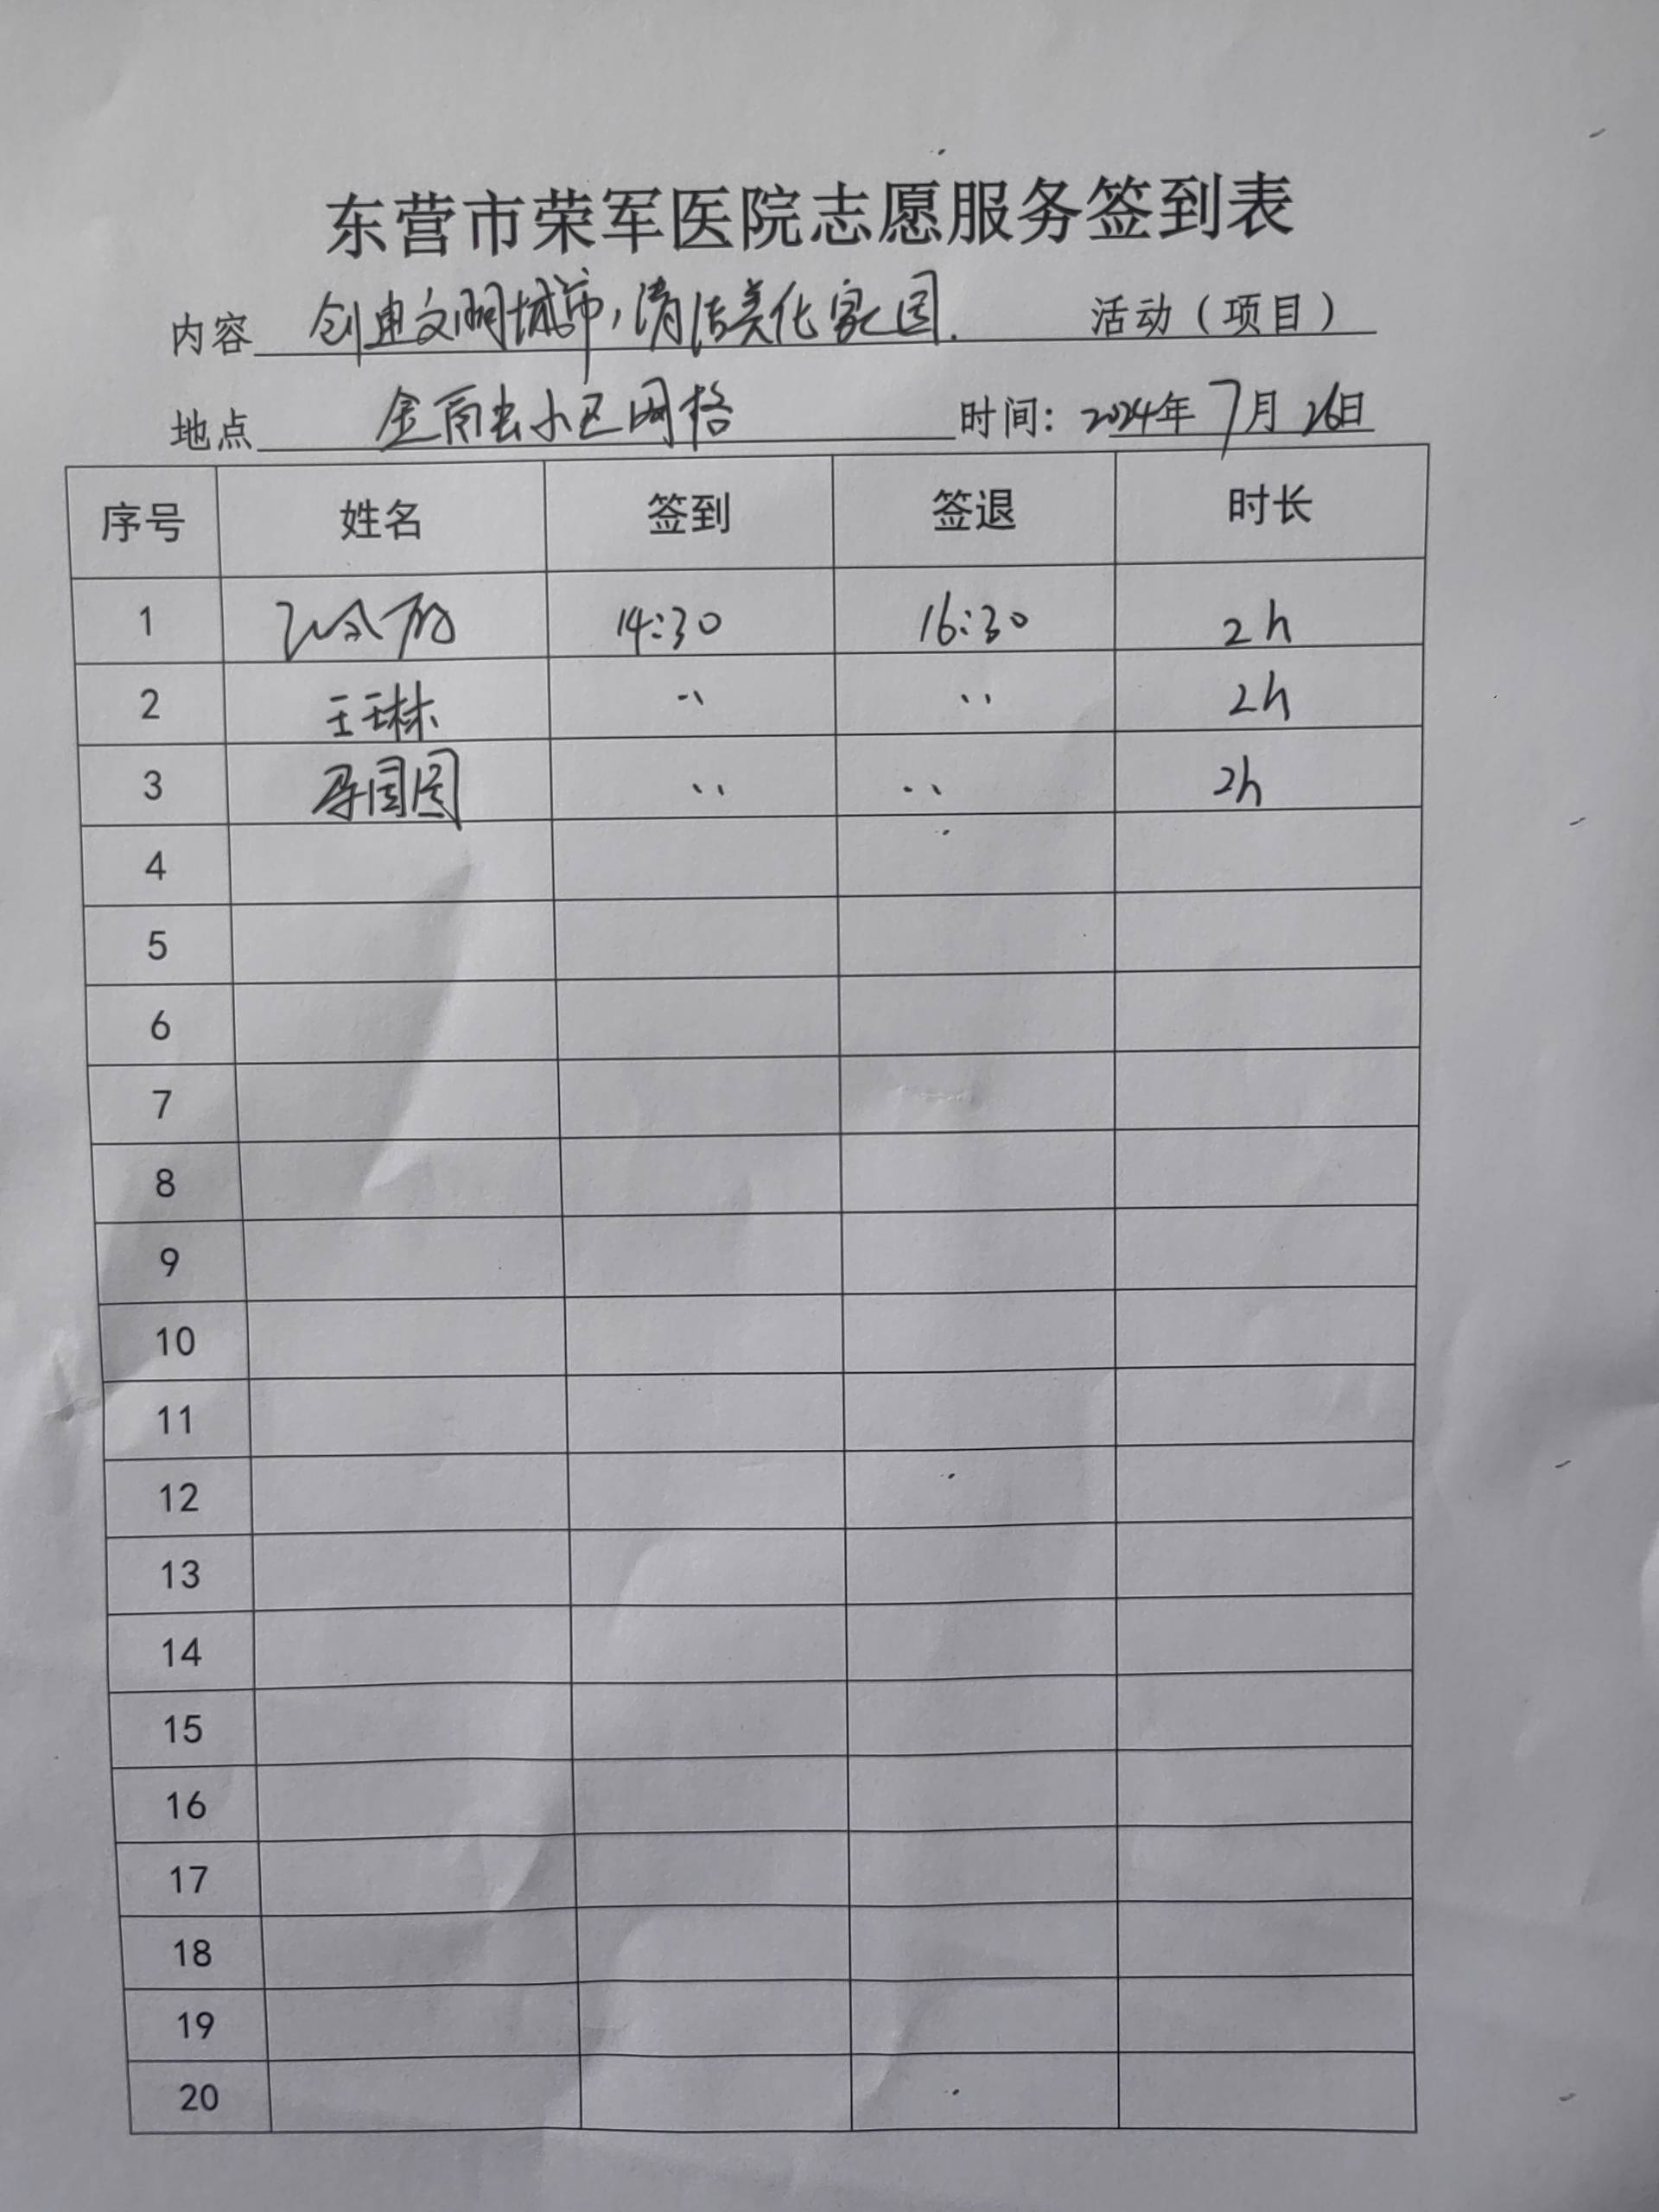 东营市荣军医院志愿服务签到表
内容 创建文明城市,清洁美化家园. 活动(项目)
地点 小区网格 时间: 2024年7月26日
序号 姓名 签到 签退 时长
1 14:30 16:30 2h
2 王琳 〃 〃 2h
3 〃 〃 2h
4
5
6
7
8
9
10
11
12
13
14
15
16
17
18
19
20